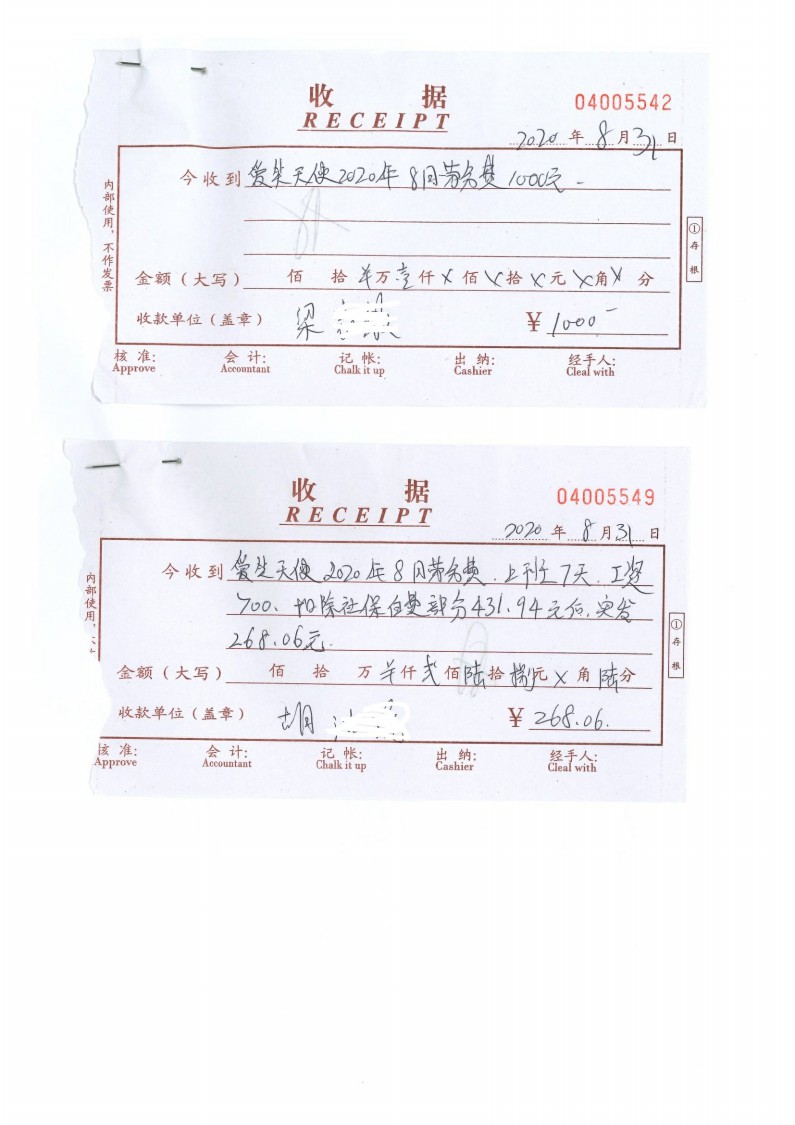 收 据
RECEIPT
04005542
2020 年 8 月 31 日
今收到 爱笑天使2020年8月劳务费1000元.
内部使用，不作发票
① 存根
金额（大写） 佰 拾 半万 壹仟 X 佰 X 拾 X 元 X 角 X 分
收款单位（盖章） 梁 ¥ 1000-
核准: 会计: 记帐: 出纳: 经手人:
Approve Accountant Chalk it up Cashier Cleal with
收 据
RECEIPT
04005549
2020 年 8 月 31 日
今收到 爱笑天使2020年8月劳务费.上班7天.工资
700、扣除社保自费部分431.94元后.实发
268.06元.
内部使用，
① 存根
金额（大写） 佰 拾 万 半仟 贰佰 陆拾 捌元 X 角 陆分
收款单位（盖章） 胡 ¥ 268.06.
核准: 会计: 记帐: 出纳: 经手人:
Approve Accountant Chalk it up Cashier Cleal with